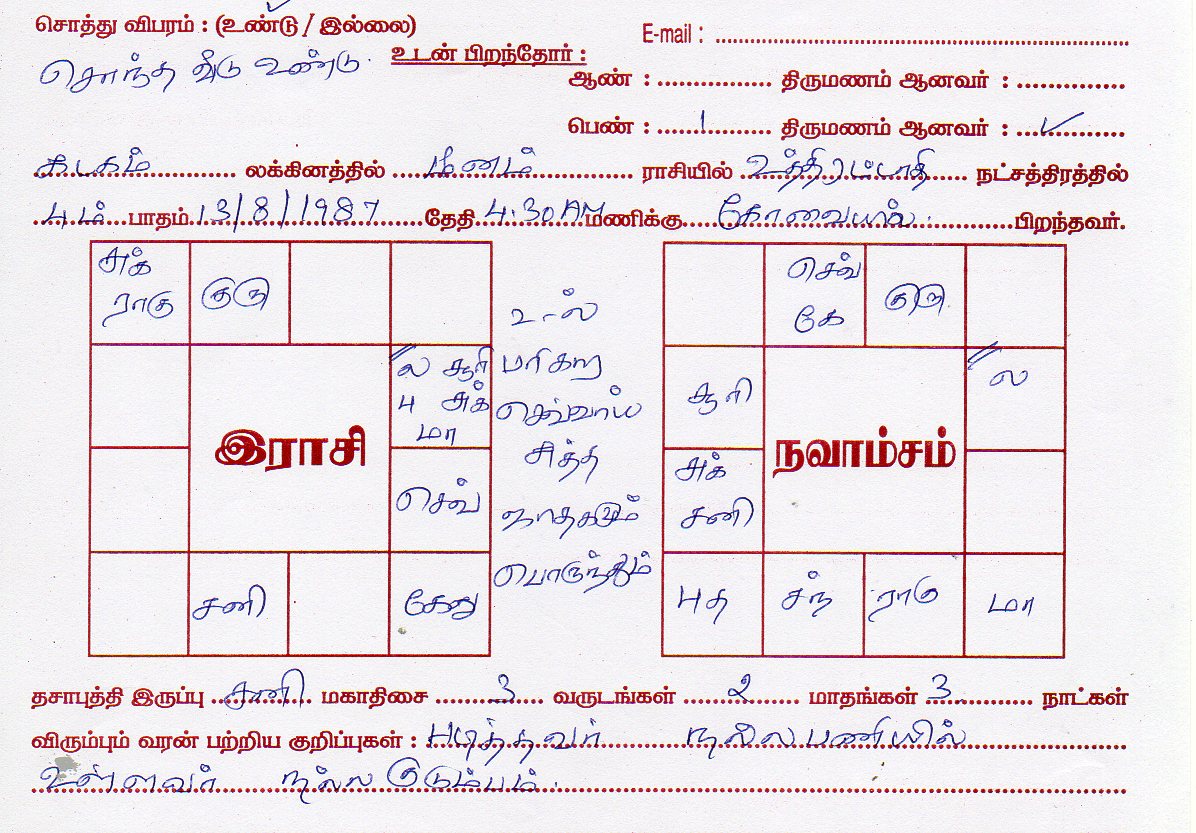 சொத்து விபரம் : (உண்டு / இல்லை)
E-mail :
சொந்த வீடு உண்டு.
உடன் பிறந்தோர் :
ஆண் : திருமணம் ஆனவர் :
பெண் : 1 திருமணம் ஆனவர் : ✓
கடகம் லக்கினத்தில் மீனம் ராசியில் உத்திரட்டாதி நட்சத்திரத்தில்
4ம் பாதம் 13/8/1987 தேதி 4.30 AM மணிக்கு கோவையில். பிறந்தவர்.
ராகு குரு
ல சூரி
மா
செவ்
சனி கேது
இராசி
உ-ல்
பரிகார
செவ்வாய்
சித்த
ஜாதகமும்
பொருந்தும்
செவ்
கே குரு
சூரி ல
சனி
புத சந் ராகு மா
நவாம்சம்
தசாபுத்தி இருப்பு சனி மகாதிசை 3 வருடங்கள் 2 மாதங்கள் 3 நாட்கள்
விரும்பும் வரன் பற்றிய குறிப்புகள் : படித்தவர் நல்ல பணியில்
உள்ளவர் நல்ல குடும்பம்.